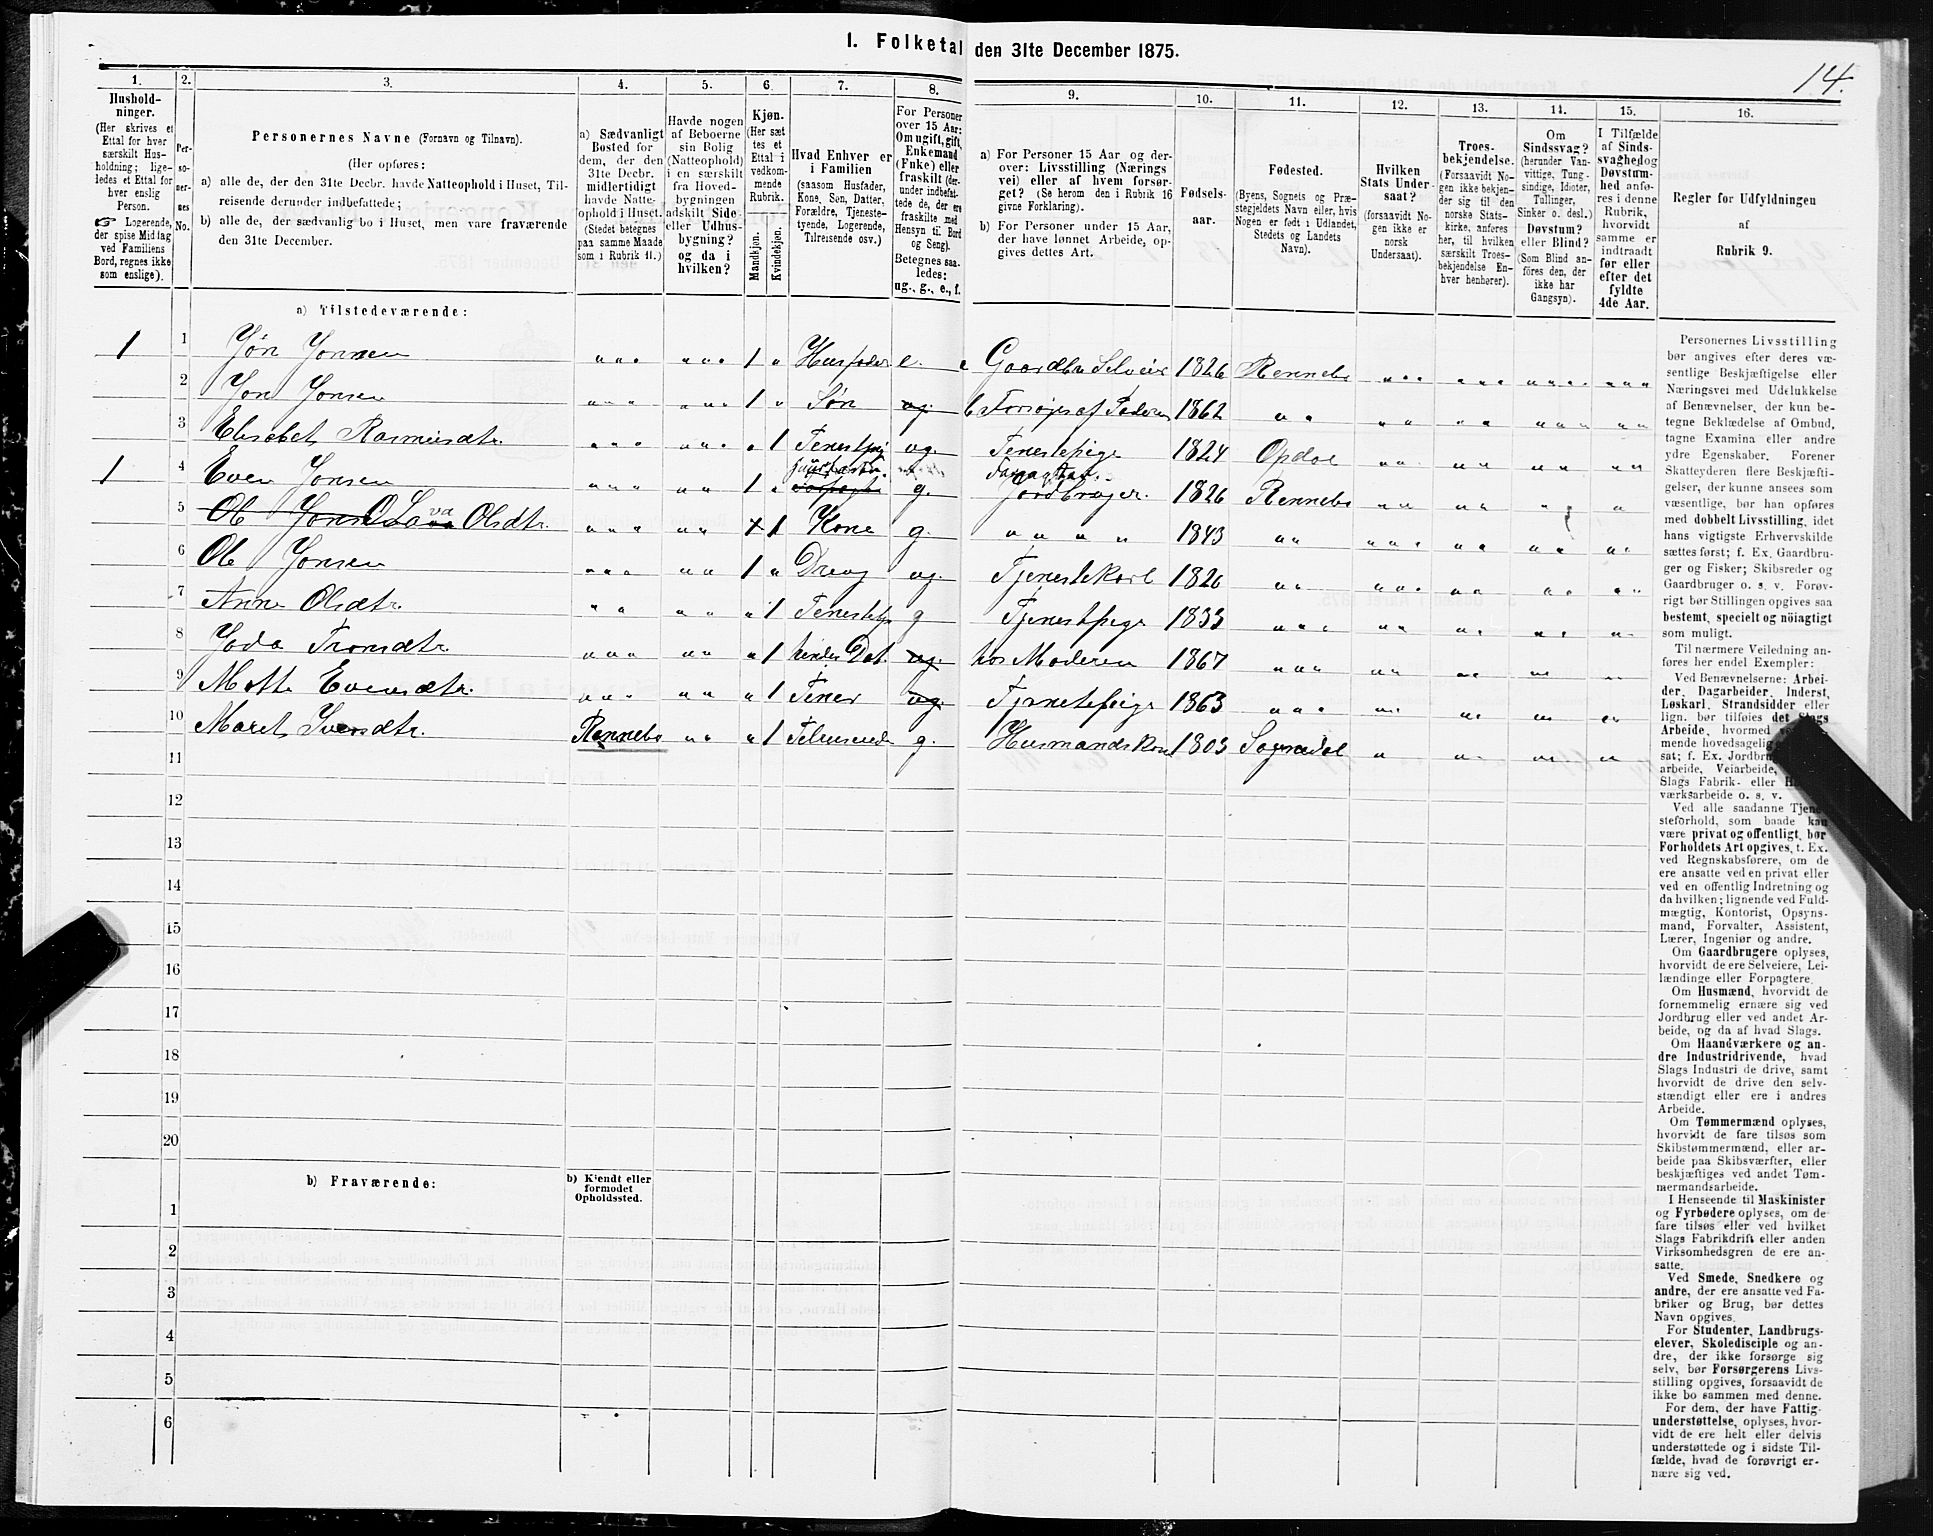 1. Folketal den 31te December 1875.
14.
1. 2. 3. 4. 5. 6. 7. 8. 9. 10. 11. 12. 13. 14. 15. 16.
Hushold-
ninger.
(Her skrives et
Ettal for hver
særskilt Hus-
holdning; lige-
ledes et Ettal for
hver enslig
Person.
☞ Logerende,
der spise Middag
ved Familiens
Bord, regnes ikke
som enslige).
Per-
so-
ner-
nes
No.
Personernes Navne (Fornavn og Tilnavn).
(Her opføres:
a) alle de, der den 31te Decbr. havde Natteophold i Huset, Til-
reisende derunder indbefattede;
b) alle de, der sædvanlig bo i Huset, men vare fraværende
den 31te December.
a) Sædvanligt
Bosted for
dem, der den
31te Decbr.
midlertidigt
havde Natte-
ophold i Huset.
(Stedet betegnes
paa samme Maade
som i Rubrik 11.)
Havde nogen
af Beboerne
sin Bolig
(Natteophold)
i en særskilt
fra Hoved-
bygningen
adskilt Side-
eller Udhus-
bygning?
og da i
hvilken?
Kjøn.
(Her sæt-
tes et
Ettal i
vedkom-
mende
Rubrik.)
Mandkjøn.
Kvindekjøn.
Hvad Enhver er
i Familien
(saasom Husfader,
Kone, Søn, Datter,
Forældre, Tjeneste-
tyende, Logerende,
Tilreisende osv.)
For Personer
over 15 Aar:
Om ugift, gift,
Enkemand
(Enke) eller
fraskilt (der-
under indbefat-
tede de, der ere
fraskilte med
Hensyn til Bord
og Seng).
Betegnes saa-
ledes:
ug., g., e., f.
a) For Personer 15 Aar og der-
over: Livsstilling (Nærings-
vei) eller af hvem forsør-
get? (Se herom den i Rubrik 16
givne Forklaring).
b) For Personer under 15 Aar,
der have lønnet Arbeide, op-
gives dettes Art.
Fødsels-
aar.
Fødested.
(Byens, Sognets og Præ-
stegjeldets Navn eller, hvis
Nogen er født i Udlandet,
Stedets og Landets
Navn).
Hvilken
Stats Under-
saat?
(forsaavidt No-
gen ikke er
norsk
Undersaat).
Troes-
bekjendelse.
(Forsaavidt No-
gen ikke bekjen-
der sig til den
norske Stats-
kirke, anføres
her, til hvilken
særskilt Troes-
bekjendelse En-
hver henhører).
Om
Sindssvag?
(herunder Van-
vittige, Tung-
sindige, Idioter,
Tullinger,
Sinker o. desl.)
Døvstum?
eller Blind?
(Som Blind an-
føres den, der
ikke har
Gangsyn).
I Tilfælde
af Sinds-
svaghed og
Døvstum-
hed anfø-
res i denne
Rubrik,
hvorvidt
samme er
indtraadt
før eller
efter det
fyldte
4de Aar.
Regler for Udfyldningen
af
Rubrik 9.
a) Tilstedeværende:
1 1 Jøn Jonsen " " " " " " 1 " Husfader e. Gaardbr Selveier 1826 Rennebo
2 Jon Jonsen 1 " Søn ug. b Forsørges af Faderen 1862 " "
3 Elisabet Rasmusdtr. " 1 ug. Tenestepige 1824 Opdal
1 4 Even Jonsen 1 " g. Jordbruger. 1826 Rennebo
5 Ole Jons Olava Olsdtr. 1 Kone g. " " " " 1843 " "
6 Ole Jonsen 1 " Dreng ug. Tjenestekarl 1820 " "
7 Anne Olsdtr. " 1 g Tjenestpige 1833 " "
8 Joda Tronsdtr. " 1 hendes Dat. ug. hos Moderen 1867 " "
9 Mette Evensdtr. " 1 Tener ug. 1863 " "
10 Maret Iversdtr. Rennebo " " " 1 g. Husmandskone 1803
11
12
13
14
15
16
17
18
19
20
b) Fraværende:
b) Kjendt eller
formodet
Opholdssted.
1
2
3
4
5
6
Personernes Livsstilling
bør angives efter deres væ-
sentlige Beskjæftigelse eller
Næringsvei med Udelukkelse
af Benævnelser, der kun be-
tegne Beklædelse af Ombud,
tagne Examina eller andre
ydre Egenskaber. Forener
Skatteyderen flere Beskjæfti-
gelser, der kunne ansees som
væsentlige, bør han opføres
med dobbelt Livsstilling, idet
hans vigtigste Erhvervskilde
sættes først; f. Ex. Gaardbru-
ger og Fisker; Skibsreder og
Gaardbruger o. s. v. Forøv-
rigt bør Stillingen opgives saa
bestemt, specielt og nöiagtigt
som muligt.
Til nærmere Veiledning an-
føres her endel Exempler:
Ved Benævnelserne: Arbei-
der, Dagarbeider, Inderst,
Løskarl, Strandsidder eller
lign. bør tilføies det Slags
Arbeide, hvormed
mende hovedsagelig
sat; f. Ex. Jordbru
arbeide, Veiarbeide,
Slags Fabrik- eller
værksarbeide o. s. v.
Ved alle saadanne Tjene-
steforhold, som baade kan
være privat og offentligt, bør
Forholdets Art opgives, t. Ex.
ved Regnskabsførere, om de
ere ansatte ved en privat eller
ved en offentlig Indretning og
da hvilken; lignende ved Fuld-
mægtig, Kontorist, Opsyns-
mand, Forvalter, Assistent,
Lærer, Ingeniør og andre.
Om Gaardbrugere oplyses,
hvorvidt de ere Selveiere, Lei-
lændinge eller Forpagtere.
Om Husmænd, hvorvidt de
fornemmelig ernære sig ved
Jordbrug eller ved andet Ar-
beide, og da af hvad Slags.
Om Haandværkere og an-
dre Industridrivende, hvad
Slags Industri de drive, samt
hvorvidt de drive den selv-
stændigt eller ere i andres
Arbeide.
Om Tømmermænd oplyses,
hvorvidt de fare tilsøs som
Skibstømmermænd, eller ar-
beide paa Skibsværfter, eller
beskjæftiges ved andet Tøm-
mermandsarbeide.
I Henseende til Maskinister
og Fyrbødere oplyses, om de
fare tilsøs eller ved hvilket
Slags Fabrikdrift eller anden
Virksomhedsgren de ere an-
satte.
Ved Smede, Snedkere og
andre, der ere ansatte ved Fa-
briker og Brug, bør dettes
Navn opgives.
For Studenter, Landbrugs-
elever, Skoledisciple og an-
dre, der ikke forsørge sig
selv, bør Forsørgerens Livs-
stilling opgives, forsaavidt de
ikke bo sammen med denne.
For dem, der have Fattig-
understøttelse, oplyses, hvor-
vidt de ere helt eller delvis
understøttede og i sidste Til-
fælde, hvad de forøvrigt er-
nære sig ved.